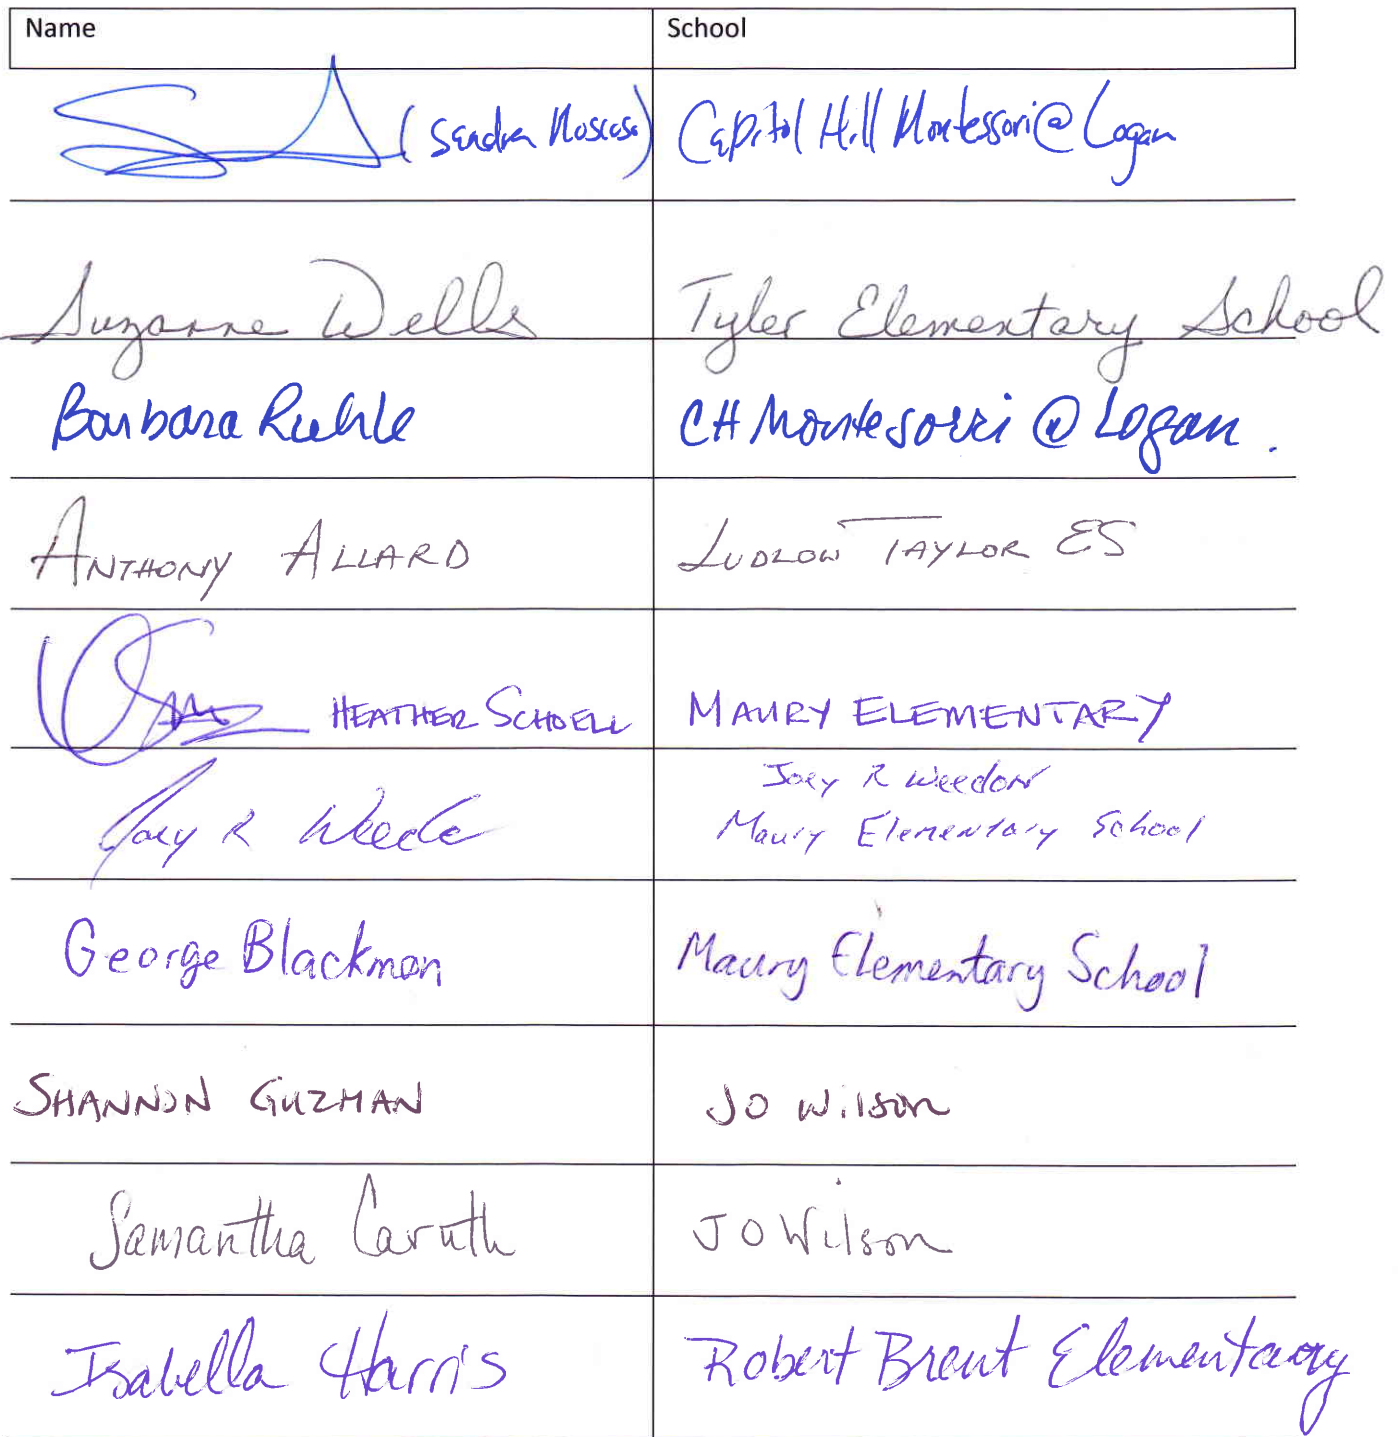 Name School
(Sandra Moscoso) Capitol Hill Montessori @ Logan
Suzanne Wells Tyler Elementary School
Barbara Riehle CH Montesorri @ Logan.
ANTHONY ALLARD LUDLOW TAYLOR ES
HEATHER SCHOELL MAURY ELEMENTARY
Joey R Weedon
Joey R Maury Elementary School
George Blackmon Maury Elementary School
SHANNON GUZMAN JO Wilson
Samantha Caruth JO Wilson
Isabella Harris Robert Brent Elementary